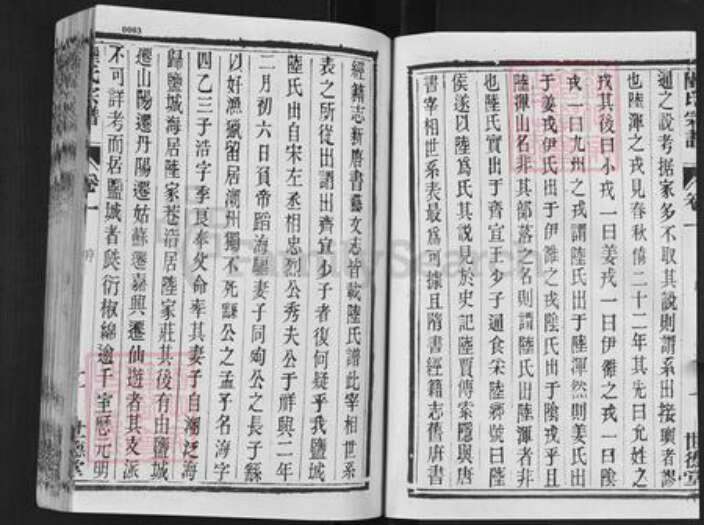 0003
陸氏宗譜
卷一
世德堂
通之說考据家多不取其說則謂系出接輿者謬
也陸渾之戎見春秋僖二十二年其先曰允姓之
戎其後曰小戎一曰姜戎一曰伊雒之戎一曰陰
戎一曰九州之戎謂陸氏出于陸渾然則姜氏出
于姜戎伊氏出于伊雒之戎陰氏出于陰戎乎且
陸渾山名非其部落之名則謂陸氏出陸渾者非
也陸氏實出于齊宣王少子通食宋陸鄉號曰陸
侯遂以陸為氏其說見於史記陸賈傳索隱與唐
書宰相世系表最為可據且隋書經籍志舊唐書
經籍志新唐書藝文志皆載陸氏譜此宰相世系
表之所從出謂出齊宣少子者復何疑乎我鹽城
陸氏出自宋左丞相忠烈公秀夫公于祥興二年
二月初六日負帝蹈海驅妻子同殉公之長子繇
以好漁獵留居潮州獨不死繇公之孟子名海字
四乙三子浩字季良奉父命率其妻子自潮泛海
歸鹽城海居陸家巷浩居陸家莊其後有由鹽城
遷山陽遷丹陽遷姑蘇遷嘉興遷仙遊者其支派
不可詳考而居鹽城者瓞衍椒綿逾千室歷元明
陸氏宗譜
卷一
世德堂
FamilySearch